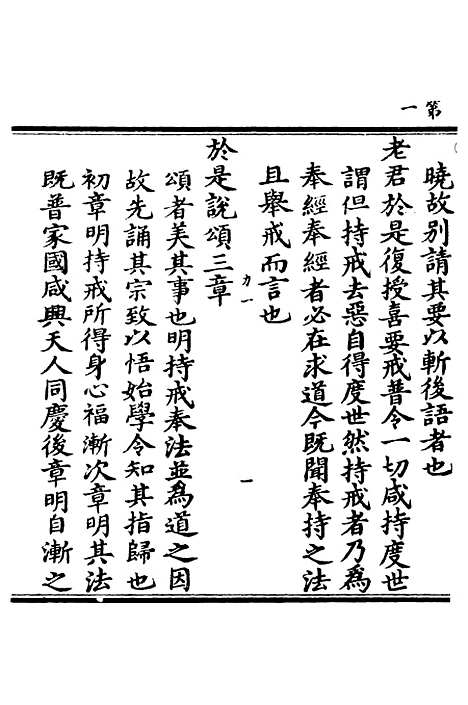 第一
曉故别請其要以斬後語者也
老君於是復授喜要戒普令一切咸持度世
謂但持戒去惡自得度世然持戒者乃為
奉經奉經者必在求道今既聞奉持之法
且舉戒而言也
力一
一
於是說頌三章
頌者美其事也明持戒奉法並為道之因
故先誦其宗致以悟始學令知其指歸也
初章明持戒所得身心福漸次章明其法
既普家國咸興天人同慶後章明自漸之